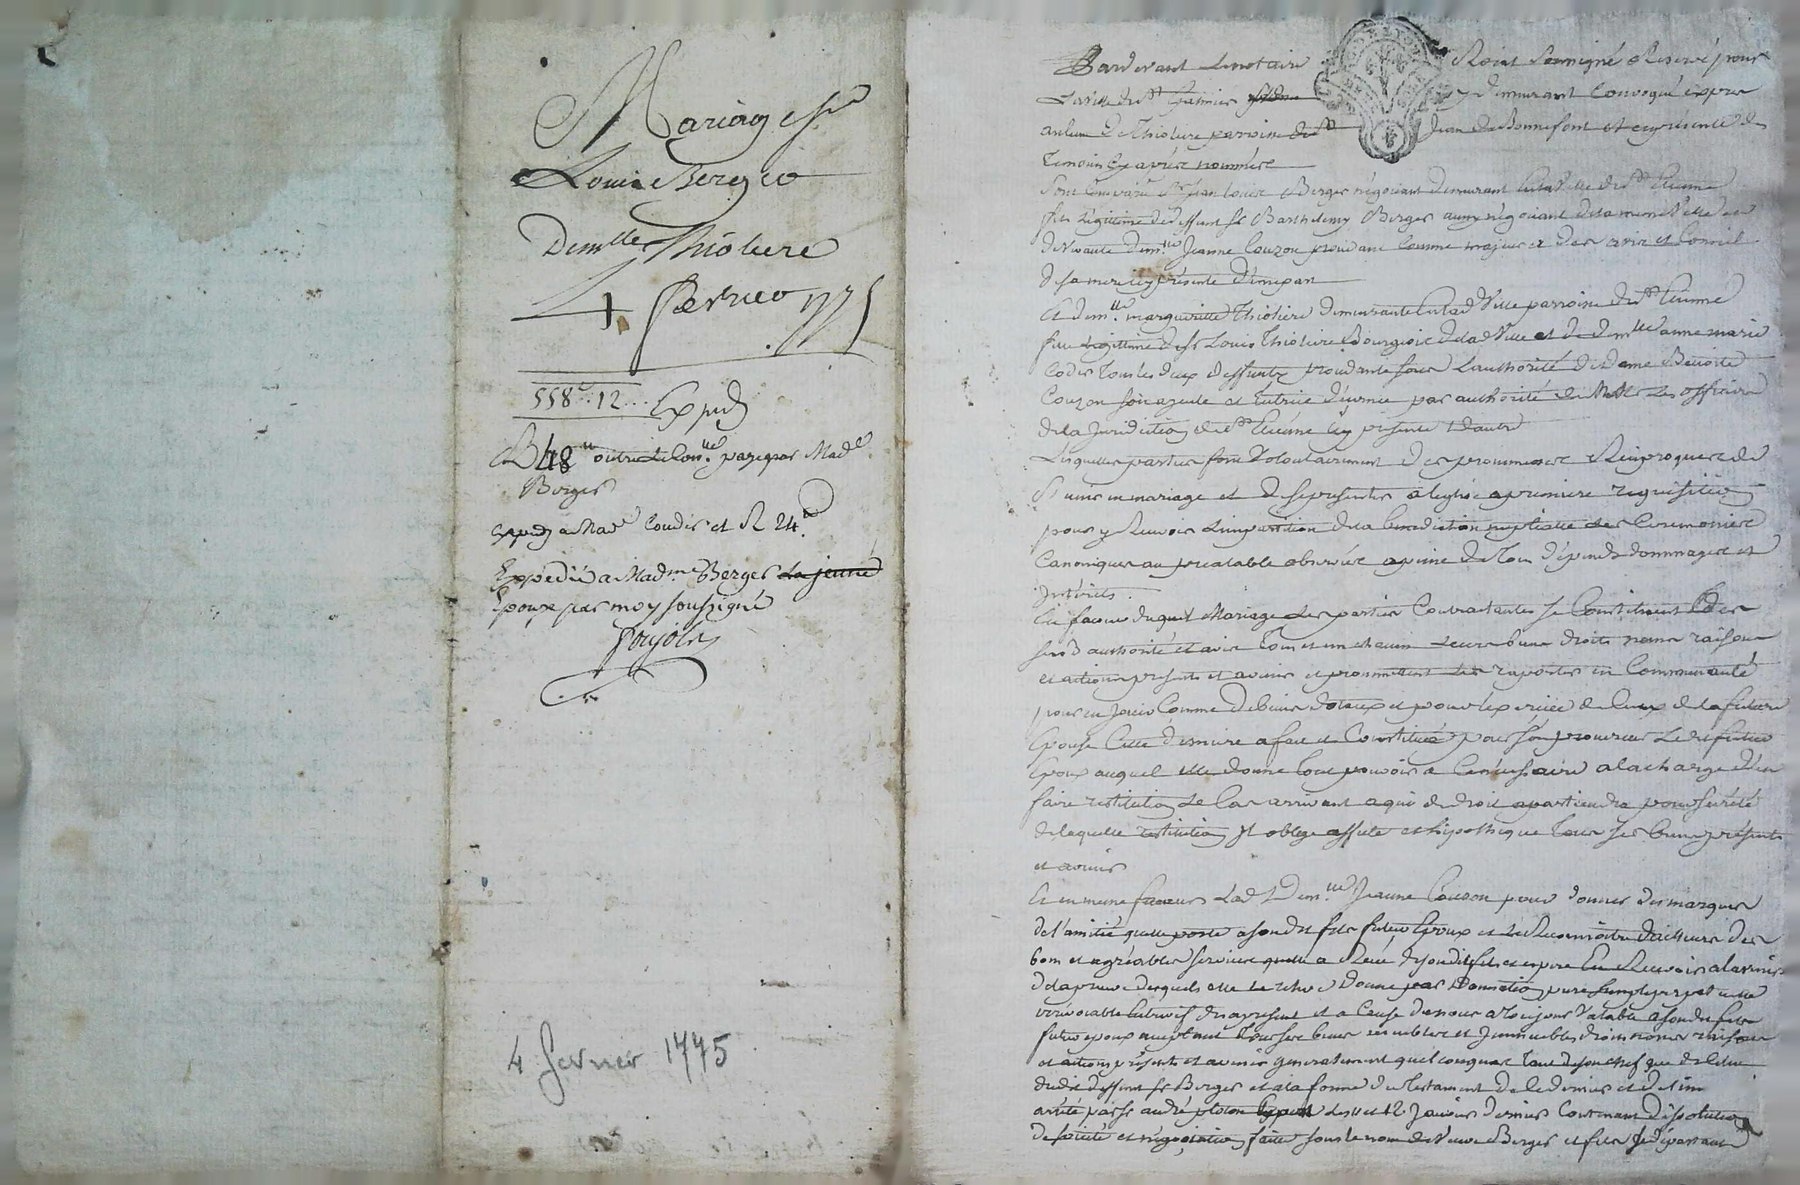 Mariage Sr
Louis Berger
Demlle Thioliere
4 fevrier 1775
558 .. 12 ... Exped
48 outre le Con.lle payé par Made
Berger
exped a Made Coudis et R 24
Expédié a Madme Berger la jeune
Epouse par moy soussigné
Poujols
4 fevrier 1775
Pardevant Le notaire Roial Soussigné Réservé pour
La ville de St Galmier y demeurant Convoqué expres
au lieu de Thioliere parroisse de St Jean de Bonnefont et en présence des
Temoins Cy après nommées
Sont Comparu Sr Jean louis Berger négociant demeurant En la Ville de St Etienne
fils Légitime de deffunt Sr Barthelemy Berger aussy négociant de la meme Ville et
de Vivante demlle Jeanne Couzon procedant comme majeur et des avis et Conseil
de sa mere icy présente d'une part
Et demlle margueritte Thioliere demeurante En lad Ville parroisse de St Etienne
fille Légitime de Sr Louis Thioliere Bourgeois de lad Ville et de demlle anne marie
Codes Tous les deux deffunts procedante sous L'authorité de dame Benoite
Couzon son ayeule et tutrice décernée par authorité de MMrs Les officiers
de la Juridiction de St Etienne icy présente d'autre
Lesquelles parties font Volontairement des promesses Réciproques de
S'unir en mariage et de se presenter a leglise a premiere requisition
pour y Recevoir L'imparition de la Benediction nuptialle les Ceremonies
Canoniques au prealable observées a peine de Tous dépends dommages et
intérêts.
En faveur duquel Mariage Les parties Contractantes se Constituent
sesd authorité et avis Tous et un chacun Leurs biens droits noms raisons
et actions présents et avenir et promettent Les raporter en Communauté
pour en Jouir Comme de biens dotaux et pour l'exercice de Ceux de la future
Epouse Cette derniere a fait et Constitué pour son procureur Led futur
Epoux auquel elle donne tout pouvoir a Ce nécessaire a la charge d'en
faire restitution Le Cas arrivant a qui de droit apartiendra pour sureté
de laquelle restitution Il oblige affecte et hipotheque Tous ses biens présents
et avenir
Et en meme faveur Lad demlle Jeanne Couzon pour donner des marques
de l'amitié quelle porte a son dt fils futur Epoux et Le Reconnoitre d'ailleurs des
bons et agréables services quelle a Recû de son dit fils et espere En Recevoir a lavenir
de la preuve desquels elle Le releve Donne par Donation pure simple perpetuelle
irrévocable Entrevifs des apresent et a Cause de noces a Toujours Valable a son dit fils
futur epoux acceptant Tous ses biens meubles et Immeubles droits noms raisons
et actions présents et avenir generallement quelconques tant de son chef que de Celui
dudit deffunt Sr Berger et a la forme du Testament de Ce dernier
arrêté par Sr andré Les 11 et 12 Janvier dernier Contenant dissolution
de société et négociation faitte sous le nom de Veuve Berger et fils Se départant